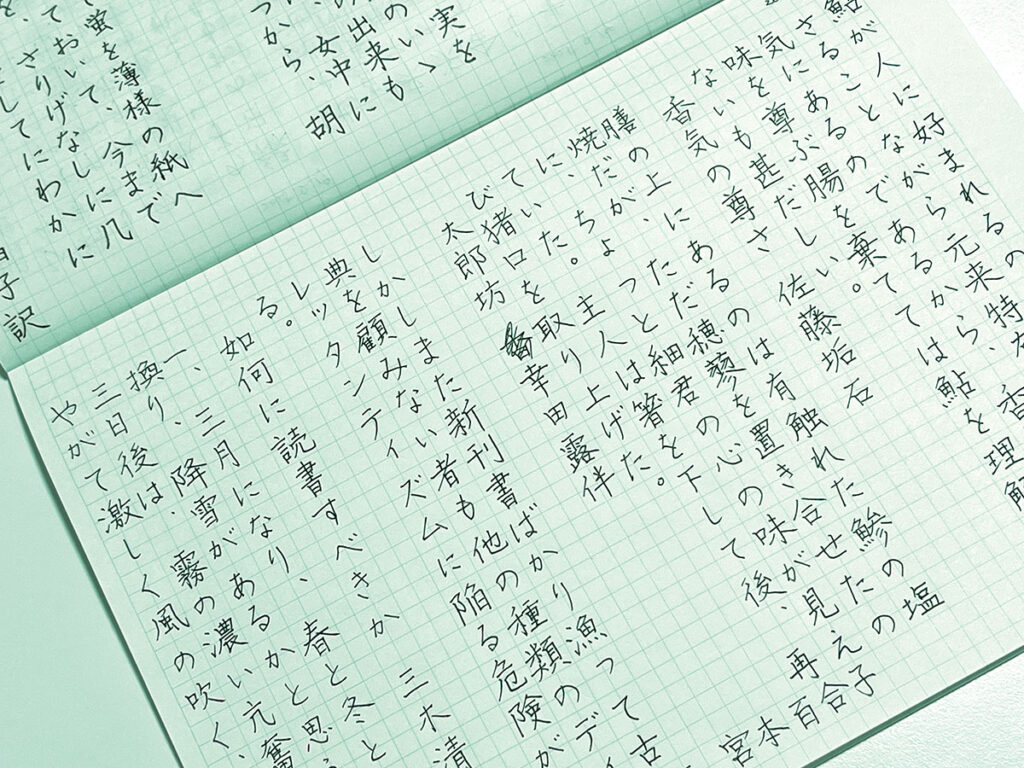 実を
のいゝ
出来も
女中に
つから、胡
蛍を薄様の紙へ
ておいて、今まで
さりげなしに几
してにわかに
子訳
鮎が人に好まれるの
さることながら元来、特有
気にあるのであるから、香
味を尊ぶ腸を棄てては鮎を理解
ないも甚だしい。
香気の尊さ 佐藤垢石
膳の上にあるのは有触れた鯵の塩
焼だが、ただ穂蓼を置き合せたの
に、ちょっと細君の心の味が見え
ていた。主人は箸を下して後、再
び猪口を取り上げた。
太郎坊 幸田露伴
宮本百合子
しかしまた新刊書ばかり漁って古
典を顧みない者も他の種類のデ
レッタンティズムに陥る危険が
る。
如何に読書すべきか 三木清
一、三月になり、春と冬と
換り、降雪があるかと思
三日後は、霧の濃い亢奮
やがて激しく風の吹く、